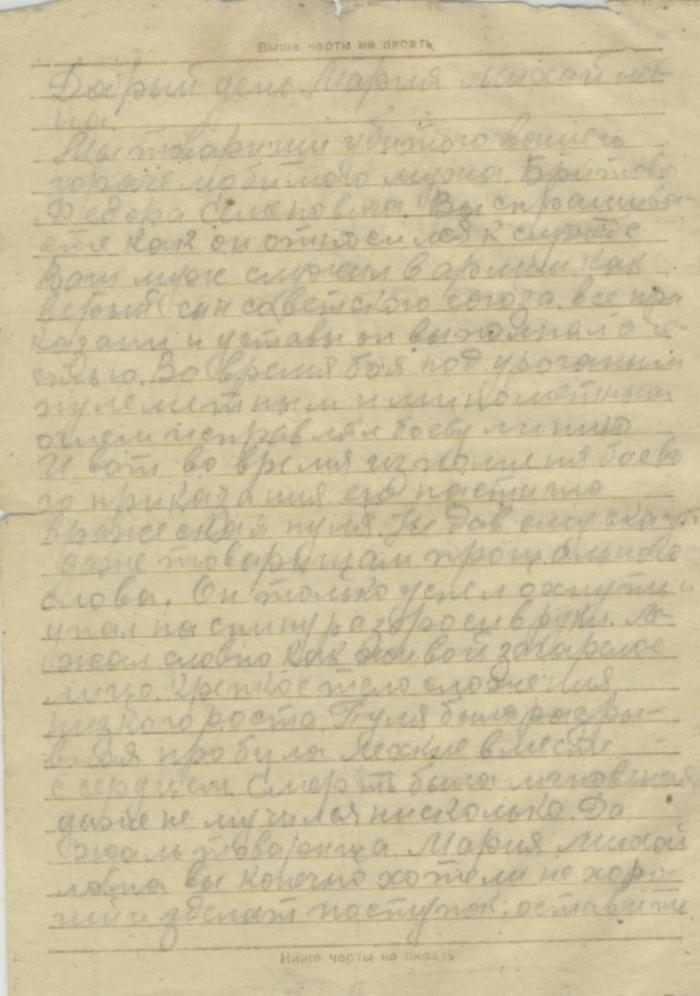 Выше черты не писать
Добрый день Мария Михайлов
на
Мы товарищи убитого вашего
горячелюбимого мужа Бритова
Федора Семеновича. Вы спрашива
ете как он относился к службе
Ваш муж служил в армии как
верный сын советского союза все при
казани и уставы он выполнял с че
стью. Во время боя под ураганым
пулеметным и минометным
огнем исправлял боеву линию
И вот во время исполнения боево
го приказания его настигла
вражеская пуля. Не дав ему сказать
даже товарищам прощального
слова. Он только успел охнути и
упал на спину разбросив руки. Ле-
жал словно как живой загарелое
лицо. Крепкое тело сложения
низкого роста. Пуля была разры-
вная пробила лехкие вместе
с сердцем. Смерть была мгновеная
даже не мучился нисколько. Да
жаль товарища. Мария Михай
ловна вы конечно хотели не хоро-
ший зделат поступок. оставити
Ниже черты не писать